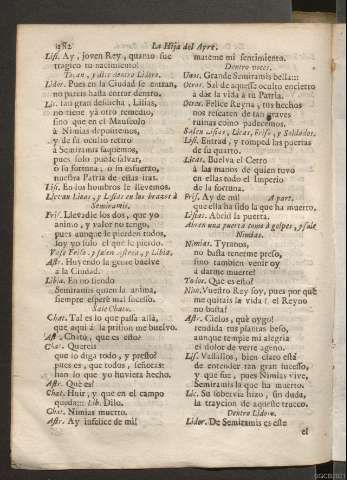 182 La Hija del Ayre.
Lis. Ay, Joven Rey, quanto fue
tragico tu nacimiento!
Tocan, y dice dentro Lidoro.
Lidor. Pues en la Ciudad se entran,
no pareis hasta entrar dentro.
Lic. tan gran desdicha, Lisias,
no tiene ya otro remedio,
sino que en el Mauseolo
à Nimias depositemos,
y de su oculto retiro
à Semiramis saquemos,
pues solo puede salvar,
ò su fortuna, ò su esfuerzo,
nuestra Patria de estas iras.
Lis. En los hombros le llevemos.
Llevan Licas, y Lisias en los brazos à
Semiramis.
Fris. Llevadle los dos, que yo
animo, y valor no tengo,
pues aunque le pierden todos,
soy yo solo el que le pierdo.
Vase Friso, y salen Astrea, y Libia.
Astr. Huyendo la gente buelve
à la Ciudad.
Libia. En no siendo
Semiramis quien la anima,
siempre esperé mal sucesso.
Sale Chato.
Chat. Tal es lo que passa allá,
que aqui à la prision me buelvo.
Astr. Chato, que es esto?
Chat. Quereis
que lo diga todo, y presto?
pues es, que todos, señoras:
han lo que yo huviera hecho.
Astr. Què es?
Chat. Huir, y que en el campo
queda:::: Lib. Dilo.
Chat. Nimias muerto.
Astr. Ay infelice de mi!
mateme mi sentimiento.
Dentro voces.
Unos. Grande Semiramis bella:::
Otros. Sal de aquesse oculto encierro
à dar la vida à tu Patria.
Otros. Felice Reyna, tus hechos
nos rescaten de tan graves
ruinas como padecemos.
Salen Lisias, Licas, Friso, y Soldados.
Lis. Entrad, y romped las puertas
de su quarto.
Licas. Buelva el Cetro
à las manos de quien tuvo
en ellas todo el Imperio
de la fortuna.
Fris. Ay de mi! A part.
que ella ha sido la que ha muerto.
Lisias. Abrid la puerta.
Abren una puerta como à golpes, y sale
Nimias.
Nimias. Tyranos,
no basta tenerme preso,
sino tambien venir oy
à darme muerte!
Todos. Què es esto?
Nim. Vuestro Rey soy, pues por què
me quitais la vida? el Reyno
no basta?
Astr. Cielos, què oygo!
rendida tus plantas beso,
aunque temple mi alegria
el dolor de verte ageno.
Lis. Vassallos, bien claro està
de entender tan gran sucesso,
y que fue, pues Nimias vive,
Semiramis la que ha muerto.
Lic. Su sobervia hizo, sin duda,
la traycion de aqueste trueco.
Dentro Lidoro.
Lidor. De Semiramis es este
el